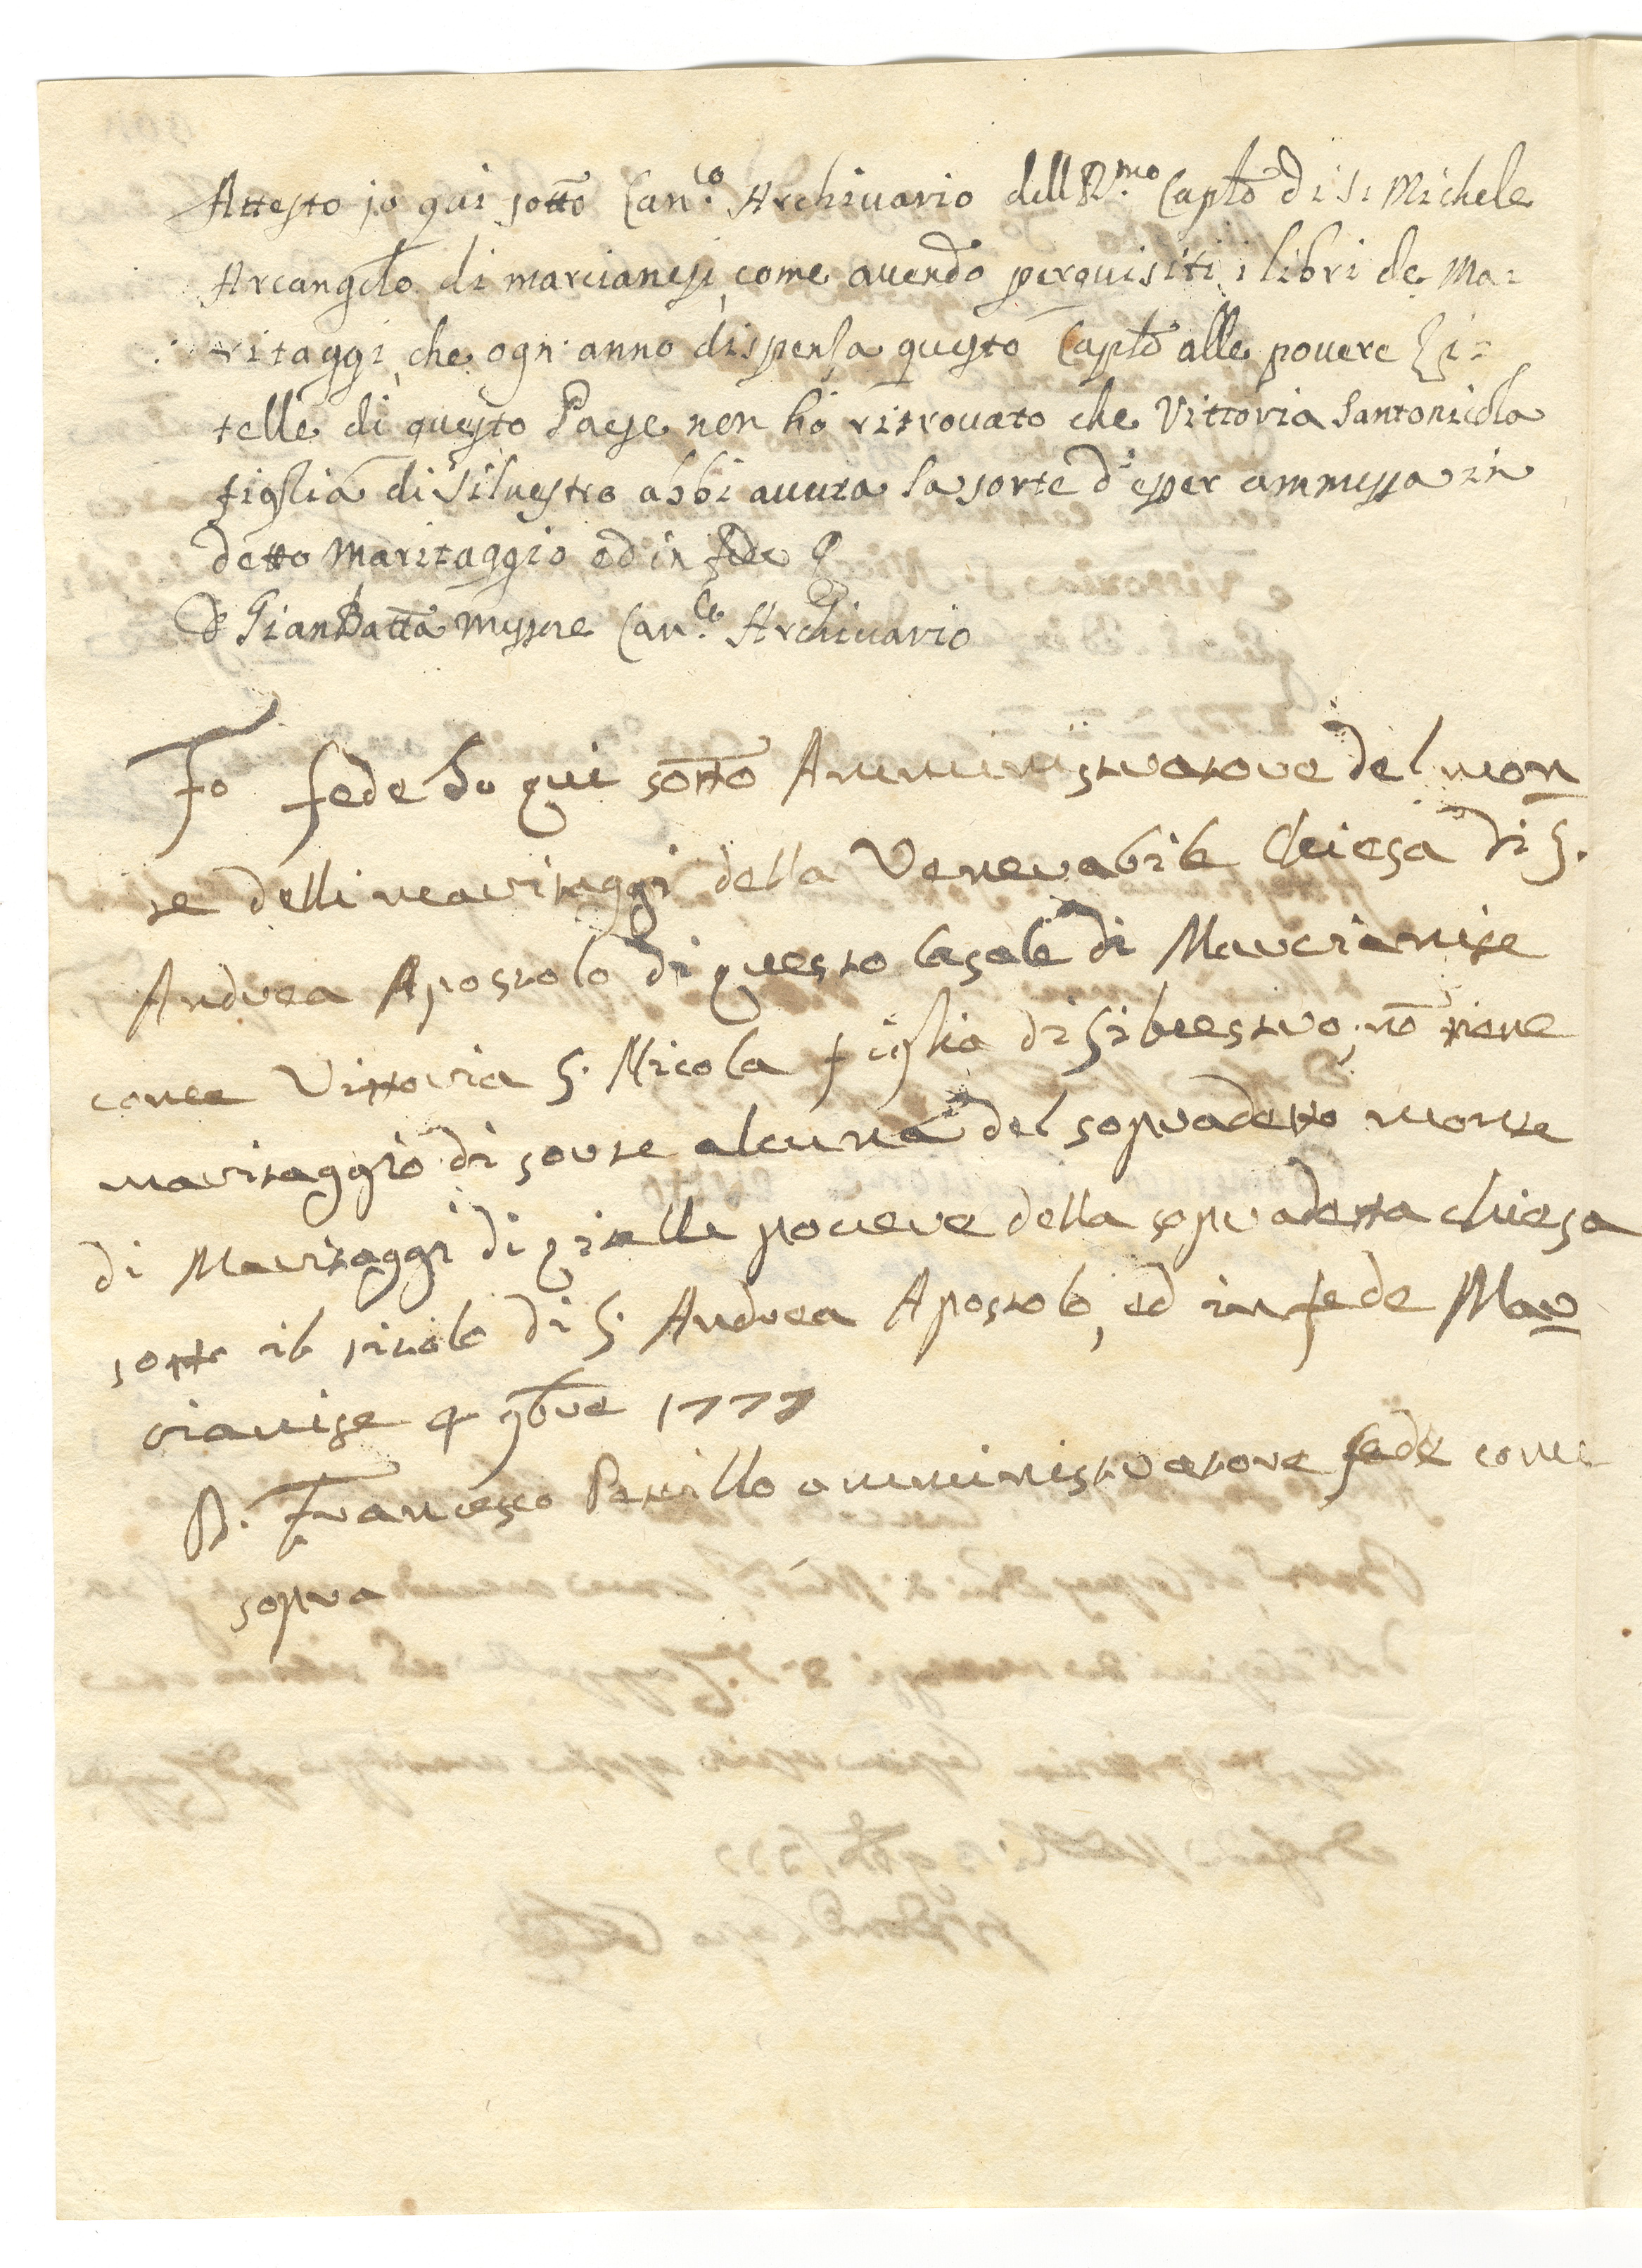 Attesto io qui sotto Can.co Archivario dell R.mo Caplo di S. Michele
Arcangelo di marcianesi, come avendo perquisiti i libri de Ma=
ritaggi, che ogn'anno dispensa questo Caplo alle povere Zi=
telle di questo Paese non ho ritrovato che Vittoria Santonicola
figlia di Silvestro abbi avuta la sorte d'esser ammessa in
detto Maritaggio ed in fede
D. GianBatta Messore Can.co Archivario
Fo fede Io qui sotto Amministratore del mon
te delli maritaggi della Venerabile Chiesa di S.
Andrea Apostolo di questo Casale di Marcianise
come Vittoria S. Nicola figlia di Silvestro, nō tiene
maritaggio di sorte alcuna del sopradetto monte
di Maritaggi di zitelle povere della sopradetta chiesa
sotto il titolo di S. Andrea Apostolo, ed in fede Mar
cianise 4 9bre 1777
D. Francesco Petrillo amministratore fede come
sopra